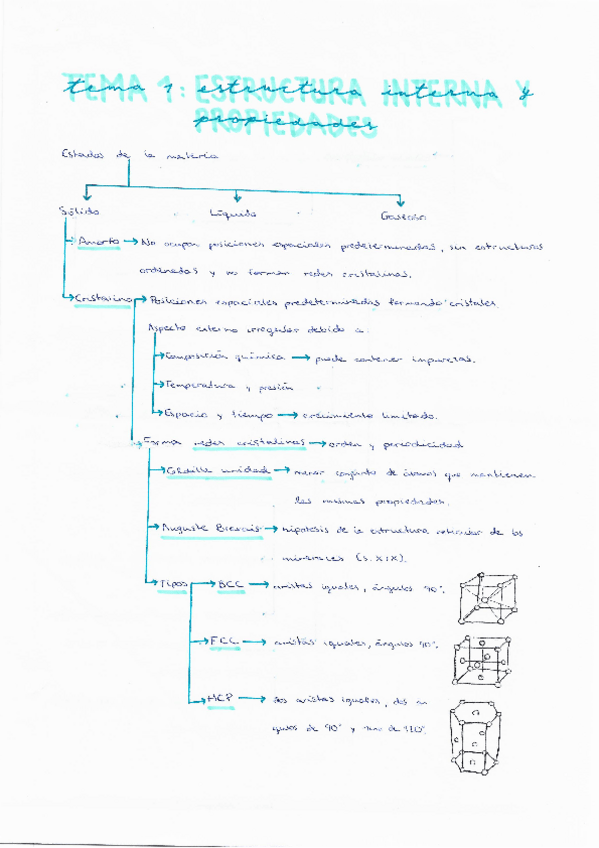 TEMA 1: ESTRUCTURA INTERNA Y
tema 1: estructura interna y
PROPIEDADES
propiedades
Estados de la materia
Sólido Líquido Gaseoso
Amorfo → No ocupan posiciones espaciales predeterminadas, sus estructuras
ordenadas y no forman redes cristalinas.
Cristalino → Posiciones espaciales predeterminadas formando cristales.
Aspecto externo irregular debido a:
Composición química → puede contener impurezas.
Temperatura y presión
Espacio y tiempo → crecimiento limitado.
Forma redes cristalinas → orden y periodicidad
Celdilla unidad → menor conjunto de átomos que mantienen
las mismas propiedades.
Auguste Bravais → hipótesis de la estructura reticular de los
minerales (s. XIX).
Tipos → BCC → aristas iguales, ángulos 90°.
FCC → aristas iguales, ángulos 90°.
HCP → dos aristas iguales, dos
gulos de 90° y uno de 120°.